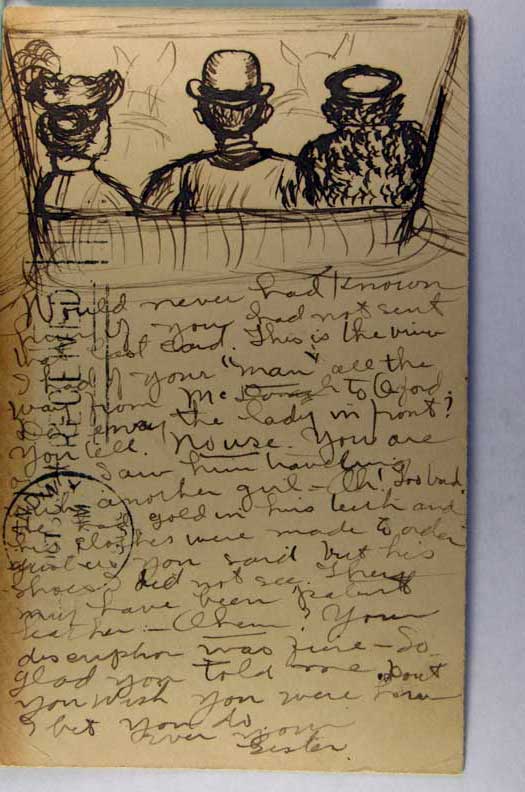 would never had known
you had not sent
last Card. This is the view
I had of your "man" all the
way from Mc to
envy the lady in front?
You tell. You are
Saw him travelling
with another girl - Oh! Too bad.
gold in his teeth and
his clothes were made to order
just as you said but his
shoes I did not see. They
must have been patent
leather - Ahem! Your
description was fine - So
glad you told me. Dont
you wish you were here
I bet you do.
Ever your
Sister.
RECEIVED